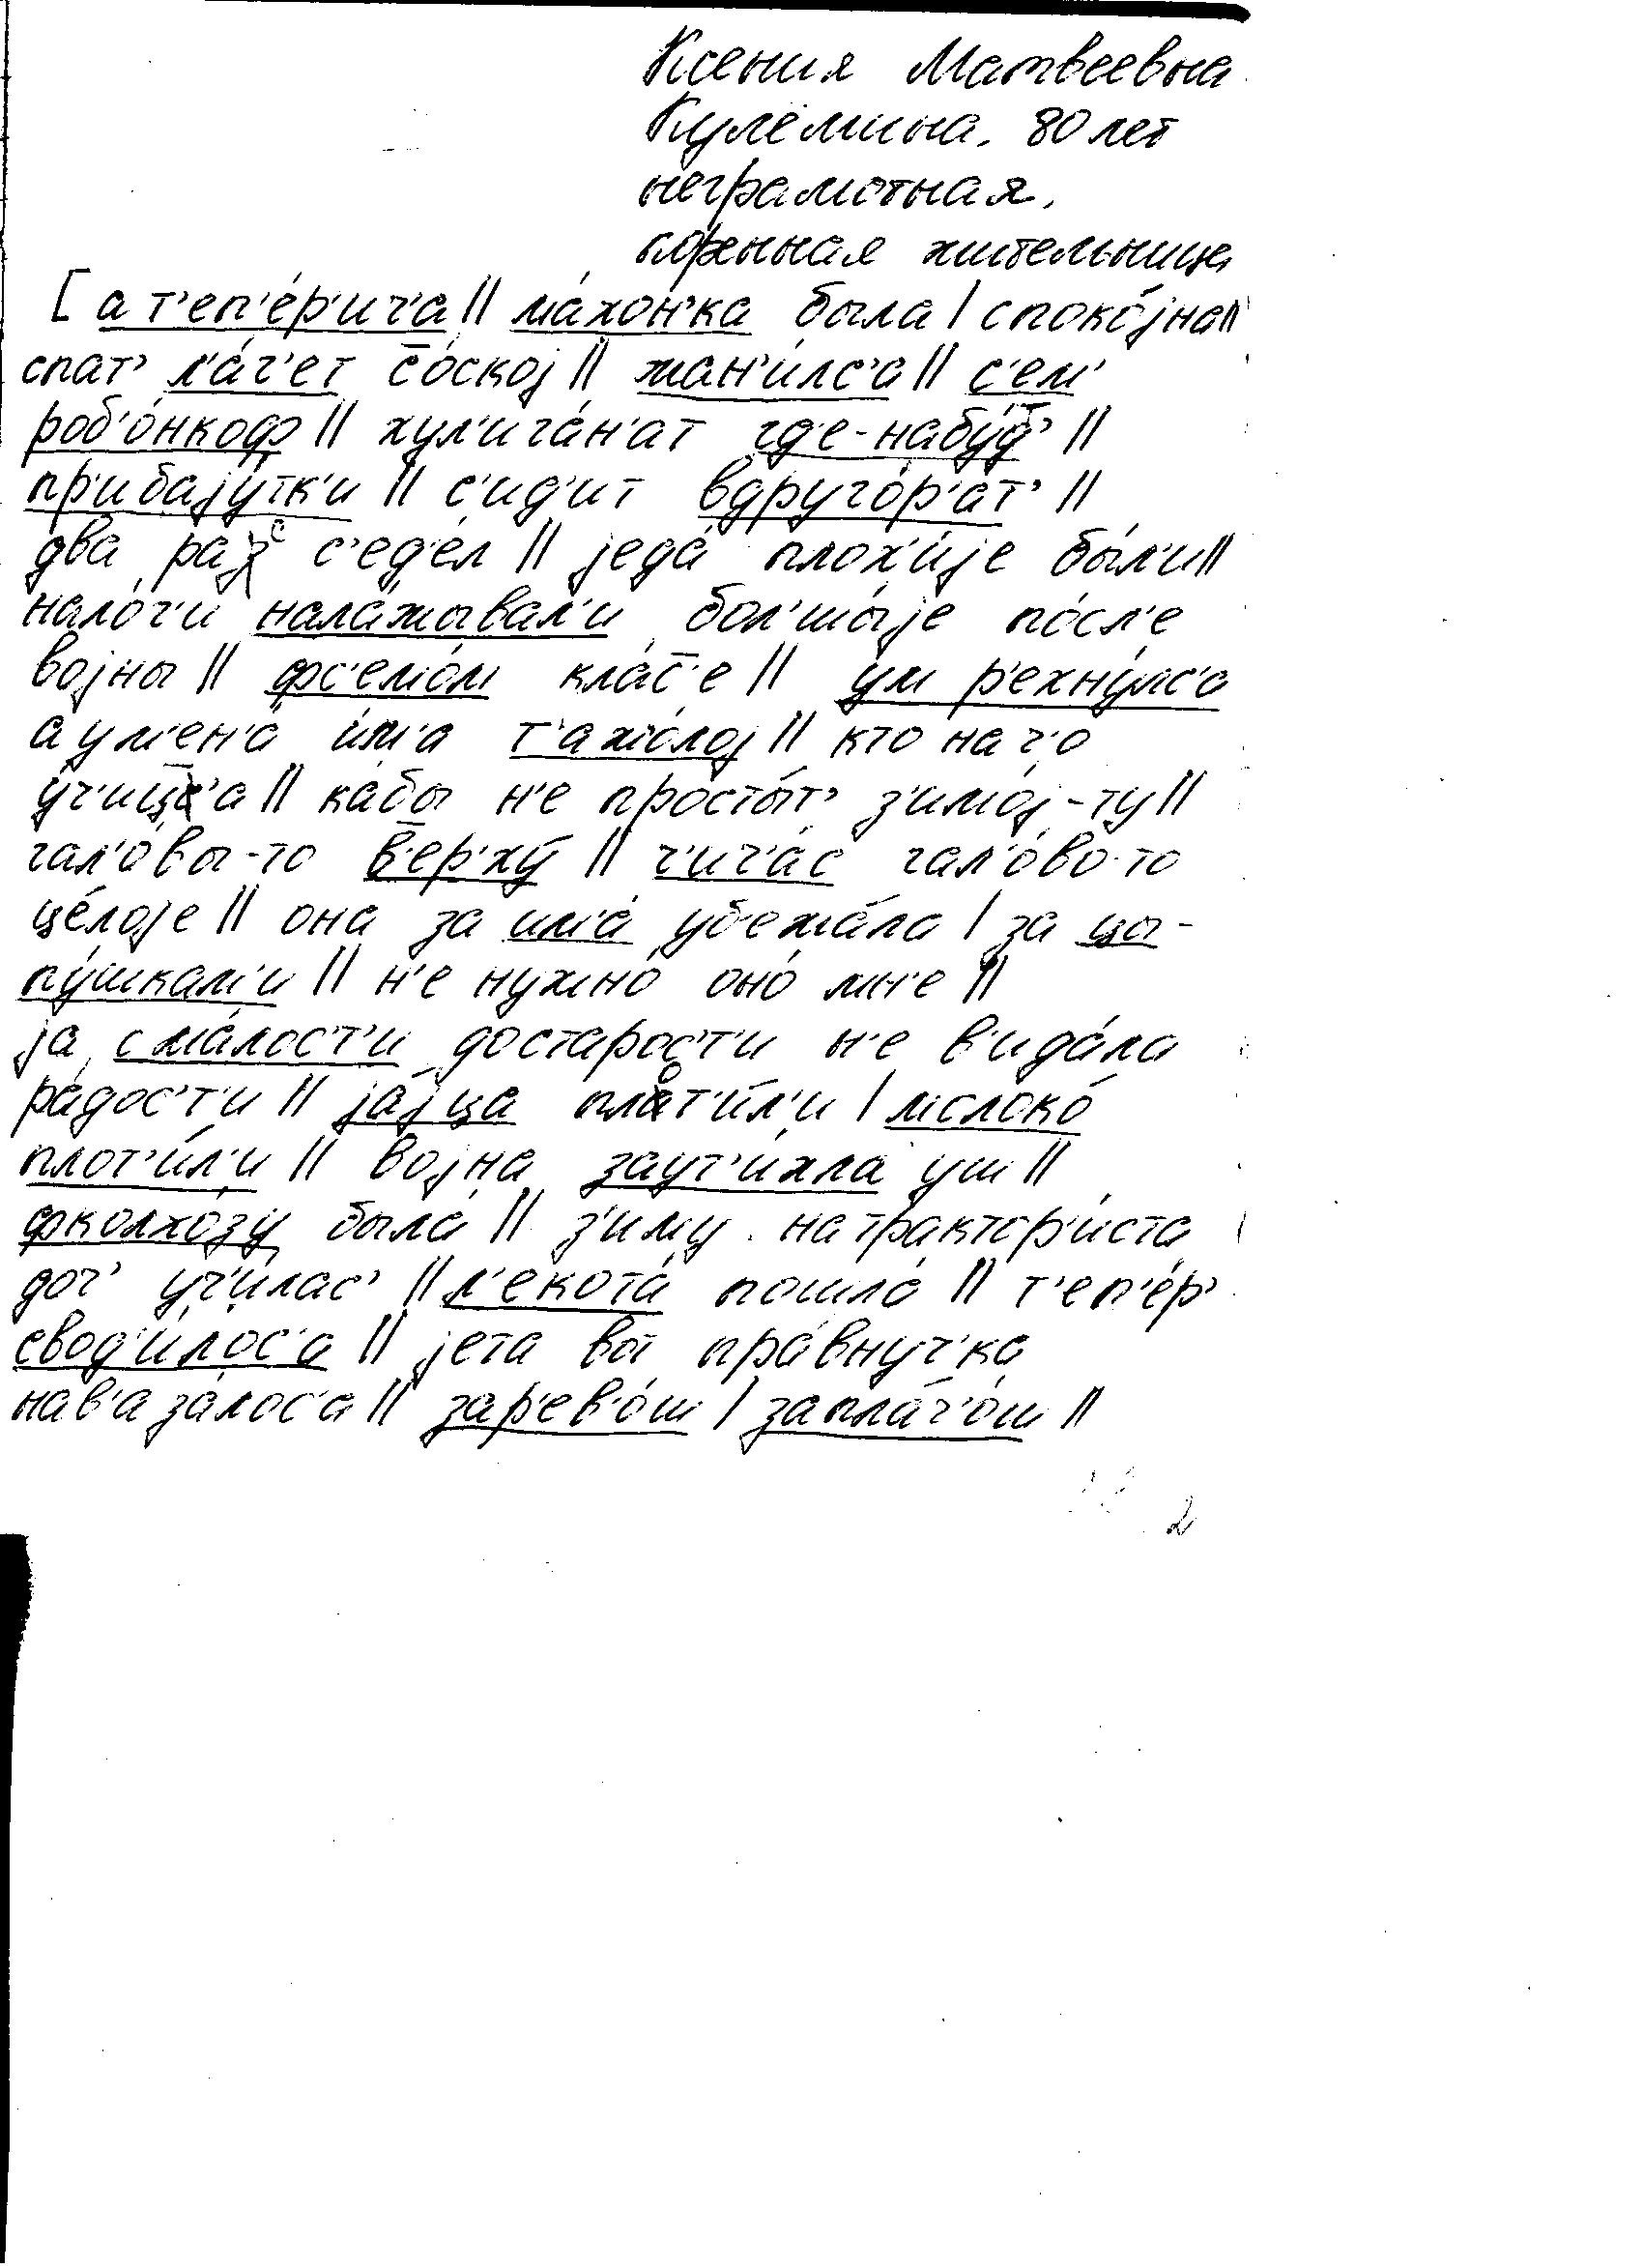 Ксения Матвеевна
Кулёмина, 80 лет
неграмотная,
коренная жительница
[а т'еп'е́р'ич'а || ма́хон'ка была | споко́јна ||
спат' л'а́г'ет с̄о́ској || жан'и́лс'а || с'ем'
роб'о́нкоф || хул'ига́н'ат гд'е-набу́т' ||
пр'ибају́тк'и || с'ид'и́т вдруго́р'ат' ||
два ра́с с'ед'е́л || једа́ плох'и́је бы́л'и ||
нало́г'и нала́жывал'и бол'шы́је по́сл'е
војны́ || фс'емо́м кла́с̄'е || ум р'ехну́лс'а
а ум'ен'а́ и́м'а т'ажо́лој || кто на ч'о
у́ч'иц̄'а || кабы н'е просты́т' з'имо́ј-ту ||
гал'о́вы-то в̄'ер'ху́ || ч'ич'а́с гал'о́во-то
це́лоје || она за им'а́ уб'ежа́ла | за цы-
пу́шкам'и || н'е нужно́ оно́ мн'е ||
ја с ма́лос'т'и достарос'т'и н'е в'ида́ла
ра́дос'т'и || ја́јца плот'и́л'и | молоко́
плот'и́л'и || војна заут'и́хла уш ||
фколхо́зу была́ || з'иму на трактор'и́ста
доч' уч'и́лас' || л'екота́ пошла́ || т'еп'е́р'
свод'и́лос'а || јета вот пра́внуч'ка
нав'аза́лос'а || зар'ев'о́ш | запла́ч'ош ||
2